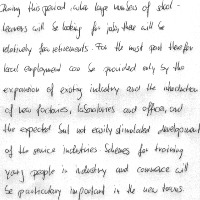 During this period, when large numbers of school-
leavers will be looking for jobs, there will be
relatively few retirements. For the most part therefore
local employment can be provided only by the
expansion of existing industry and the introduction
of new factories, laboratories and offices, and
the expected but not easily stimulated development
of the service industries. Schemes for training
young people in industry and commerce will
be particularly important in the new towns.